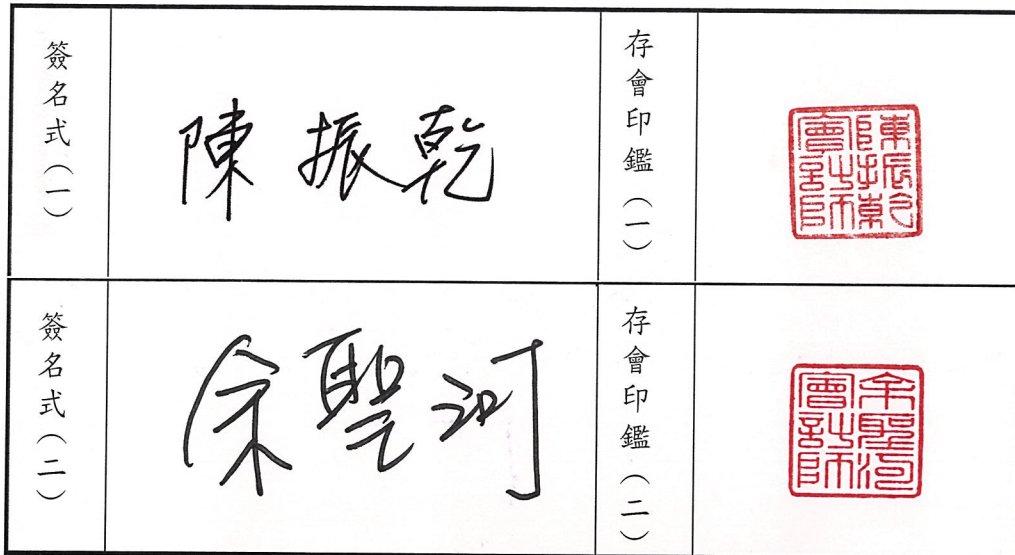 簽名式（一）
陳振乾
存會印鑑（一）
陳振乾會計師
簽名式（二）
余聖河
存會印鑑（二）
余聖河會計師